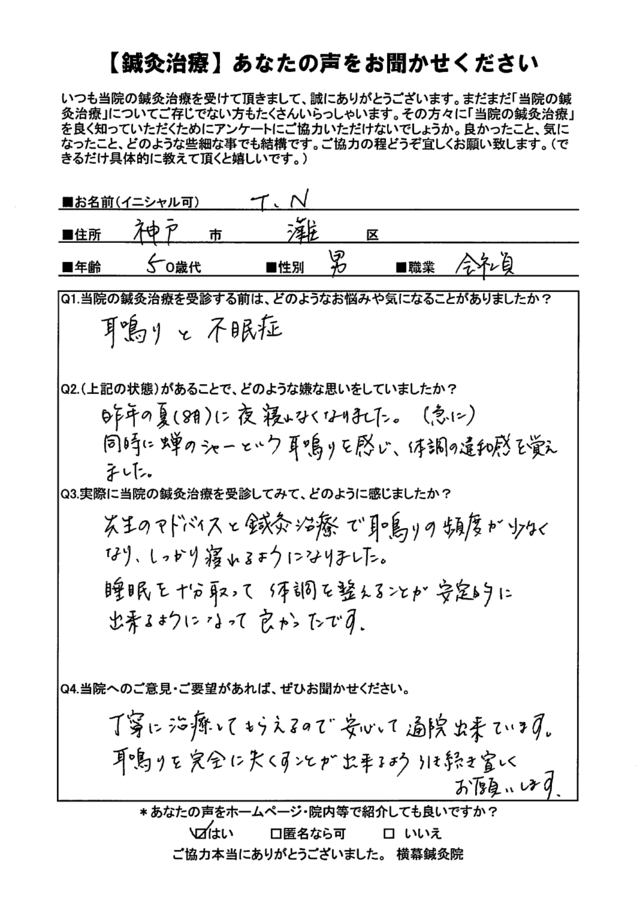 【鍼灸治療】あなたの声をお聞かせください
いつも当院の鍼灸治療を受けて頂きまして、誠にありがとうございます。まだまだ「当院の鍼
灸治療」についてご存じでない方もたくさんいらっしゃいます。その方々に「当院の鍼灸治療」
を良く知っていただくためにアンケートにご協力いただけないでしょうか。良かったこと、気に
なったこと、どのような些細な事でも結構です。ご協力の程どうぞ宜しくお願い致します。（で
きるだけ具体的に教えて頂くと嬉しいです。）
■お名前（イニシャル可） T.N
■住所 神戸 市 灘 区
■年齢 50歳代 ■性別 男 ■職業 会社員
Q1.当院の鍼灸治療を受診する前は、どのようなお悩みや気になることがありましたか？
耳鳴りと不眠症
Q2.（上記の状態）があることで、どのような嫌な思いをしていましたか？
昨年の夏(8月)に夜寝れなくなりました。(急に)
同時に蝉のシャーという耳鳴りを感じ、体調の違和感を覚え
ました。
Q3.実際に当院の鍼灸治療を受診してみて、どのように感じましたか？
先生のアドバイスと鍼灸治療で耳鳴りの頻度が少なく
なり、しっかり寝れるようになりました。
睡眠を十分取って体調を整えることが安定的に
出来るようになって良かったです.
Q4.当院へのご意見・ご要望があれば、ぜひお聞かせください。
丁寧に治療してもらえるので安心して通院出来ています。
耳鳴りを完全に失くすことが出来るよう引き続き宜しく
お願いします.
＊あなたの声をホームページ・院内等で紹介しても良いですか？
☑はい □匿名なら可 □ いいえ
ご協力本当にありがとうございました。 横幕鍼灸院